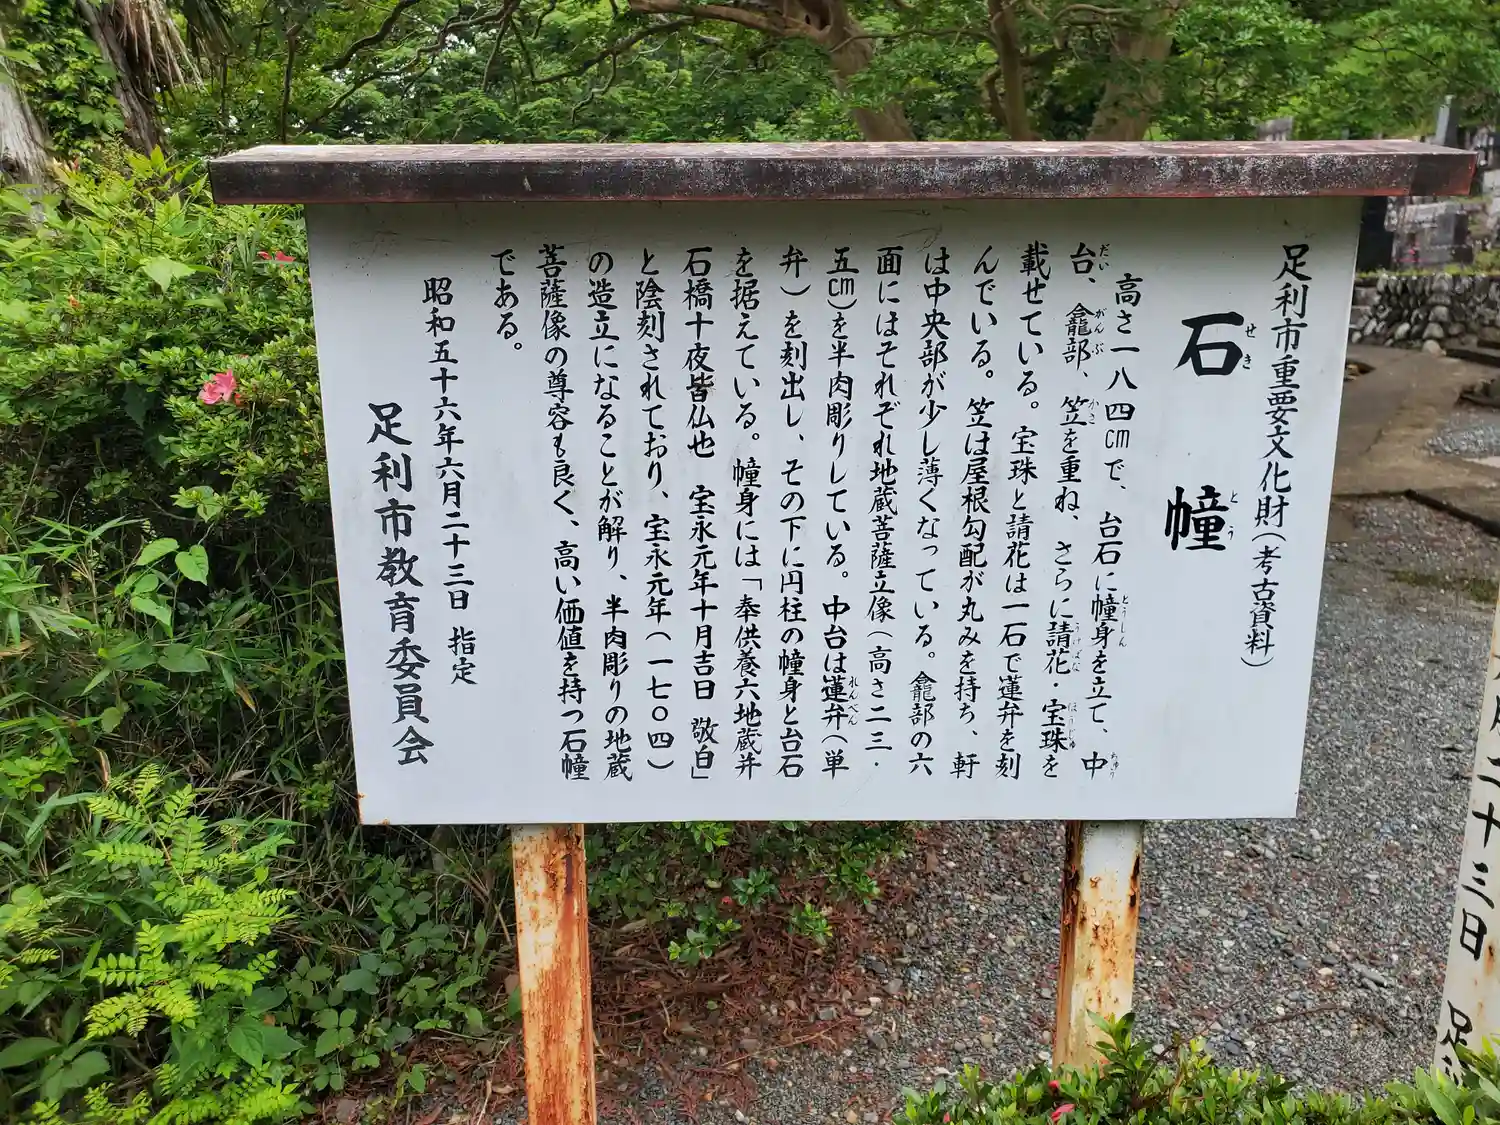 足利市重要文化財（考古資料）
石幢
せきとう
高さ一八四㎝で、台石に幢身を立て、中
とうしん
ちゅう
台、龕部、笠を重ね、さらに請花・宝珠を
だい がんぶ かさ うけばん ほうじゅ
載せている。宝珠と請花は一石で蓮弁を刻
んでいる。笠は屋根勾配が丸みを持ち、軒
は中央部が少し薄くなっている。龕部の六
面にはそれぞれ地蔵菩薩立像（高さ二三・
五㎝）を半肉彫りしている。中台は蓮弁（単
れんべん
弁）を刻出し、その下に円柱の幢身と台石
を据えている。幢身には「奉供養六地蔵并
石橋十夜皆仏也 宝永元年十月吉日 敬白」
と陰刻されており、宝永元年（一七〇四）
の造立になることが解り、半肉彫りの地蔵
菩薩像の尊容も良く、高い価値を持つ石幢
である。
昭和五十六年六月二十三日 指定
足利市教育委員会
月二十三日 足